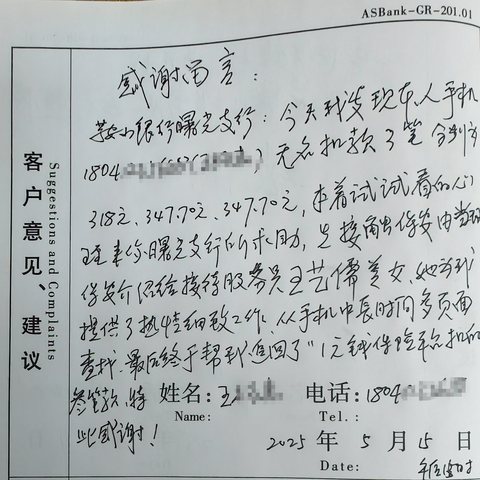 ASBank-GR-201.01
客户意见、建议
Suggestions and Complaints
感谢留言：
鞍山银行曙光支行：今天我发现本人手机
1804 无名扣款3笔分别为
318元、347.70元、347.70元，本着试试看的心
曙光支行 求助，
保安介绍给接待服务员王艺儒美女，她为我
提供了热情细致工作，从手机中长时间多页面
查找，最后终于帮我追回了"1元钱保险乱扣的
叁笔款，特
此感谢！
姓名：王 电话：1804
Name: Tel.:
2025 年 5 月 15 日
Date: